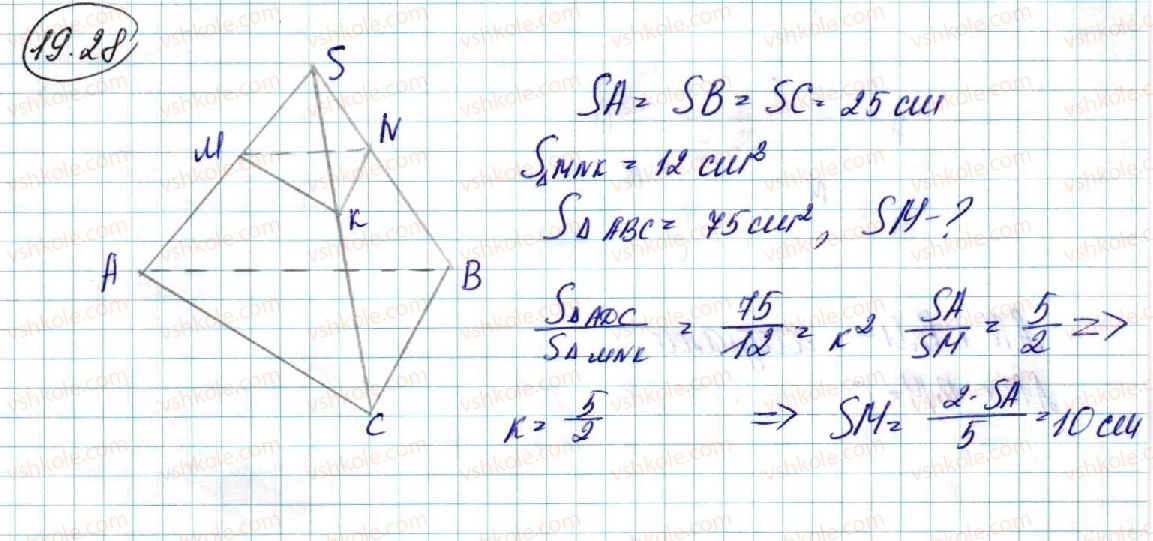 19.28
S
M
N
K
A
B
C
SA = SB = SC = 25 см
S△MNK = 12 см²
S△ABC = 75 см², SM - ?
S△ABC / S△MNK = 75/12 = k² SA/SM = 5/2 =>
k = 5/2 => SM = 2·SA/5 = 10 см
vshkole.com